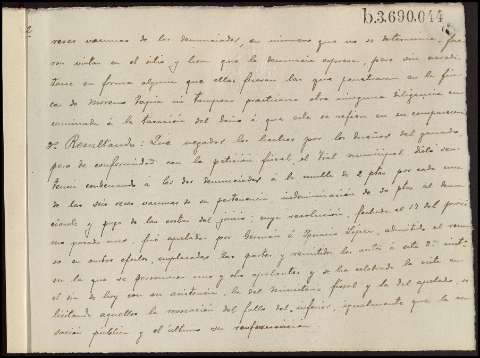 b.3.690.044
reses vacunas de los denunciados, en número que no se determina, fue
ron vistas en el sitio y hora que la denuncia expresa, pero sin acredi
tarse en forma alguna que ellas fueran las que penetraron en la fin
ca de Moreno Tapia ni tampoco practicara otra ninguna diligencia en
caminada á la tasación del daño á que este se refiere en su comparecencia
Resultando: Que negados los hechos por los dueños del ganado,
pero de conformidad con la petición fiscal, el Tral municipal dictó sen
tencia condenando á los dos denunciados á la multa de 2 ptas por cada una
de las seis reses vacunas de su pertenencia indemnización de 30 ptas al denun
ciante y pago de las costas del juicio; cuya resolución, fechada el 13 del próxi
mo pasado mes, fué apelada por Germán é Ignacio López, admitido el recur
so en ambos efectos, emplazadas las partes y remitidos los autos á esta 2ª inst
en la que se personaron uno y otro apelantes y se ha celebrado la vista en
el día de hoy con su asistencia, la del Ministerio fiscal y la del apelado so
licitando aquellos la revocación del fallo del inferior, igualmente que la acu
sación pública y el último su confirmación